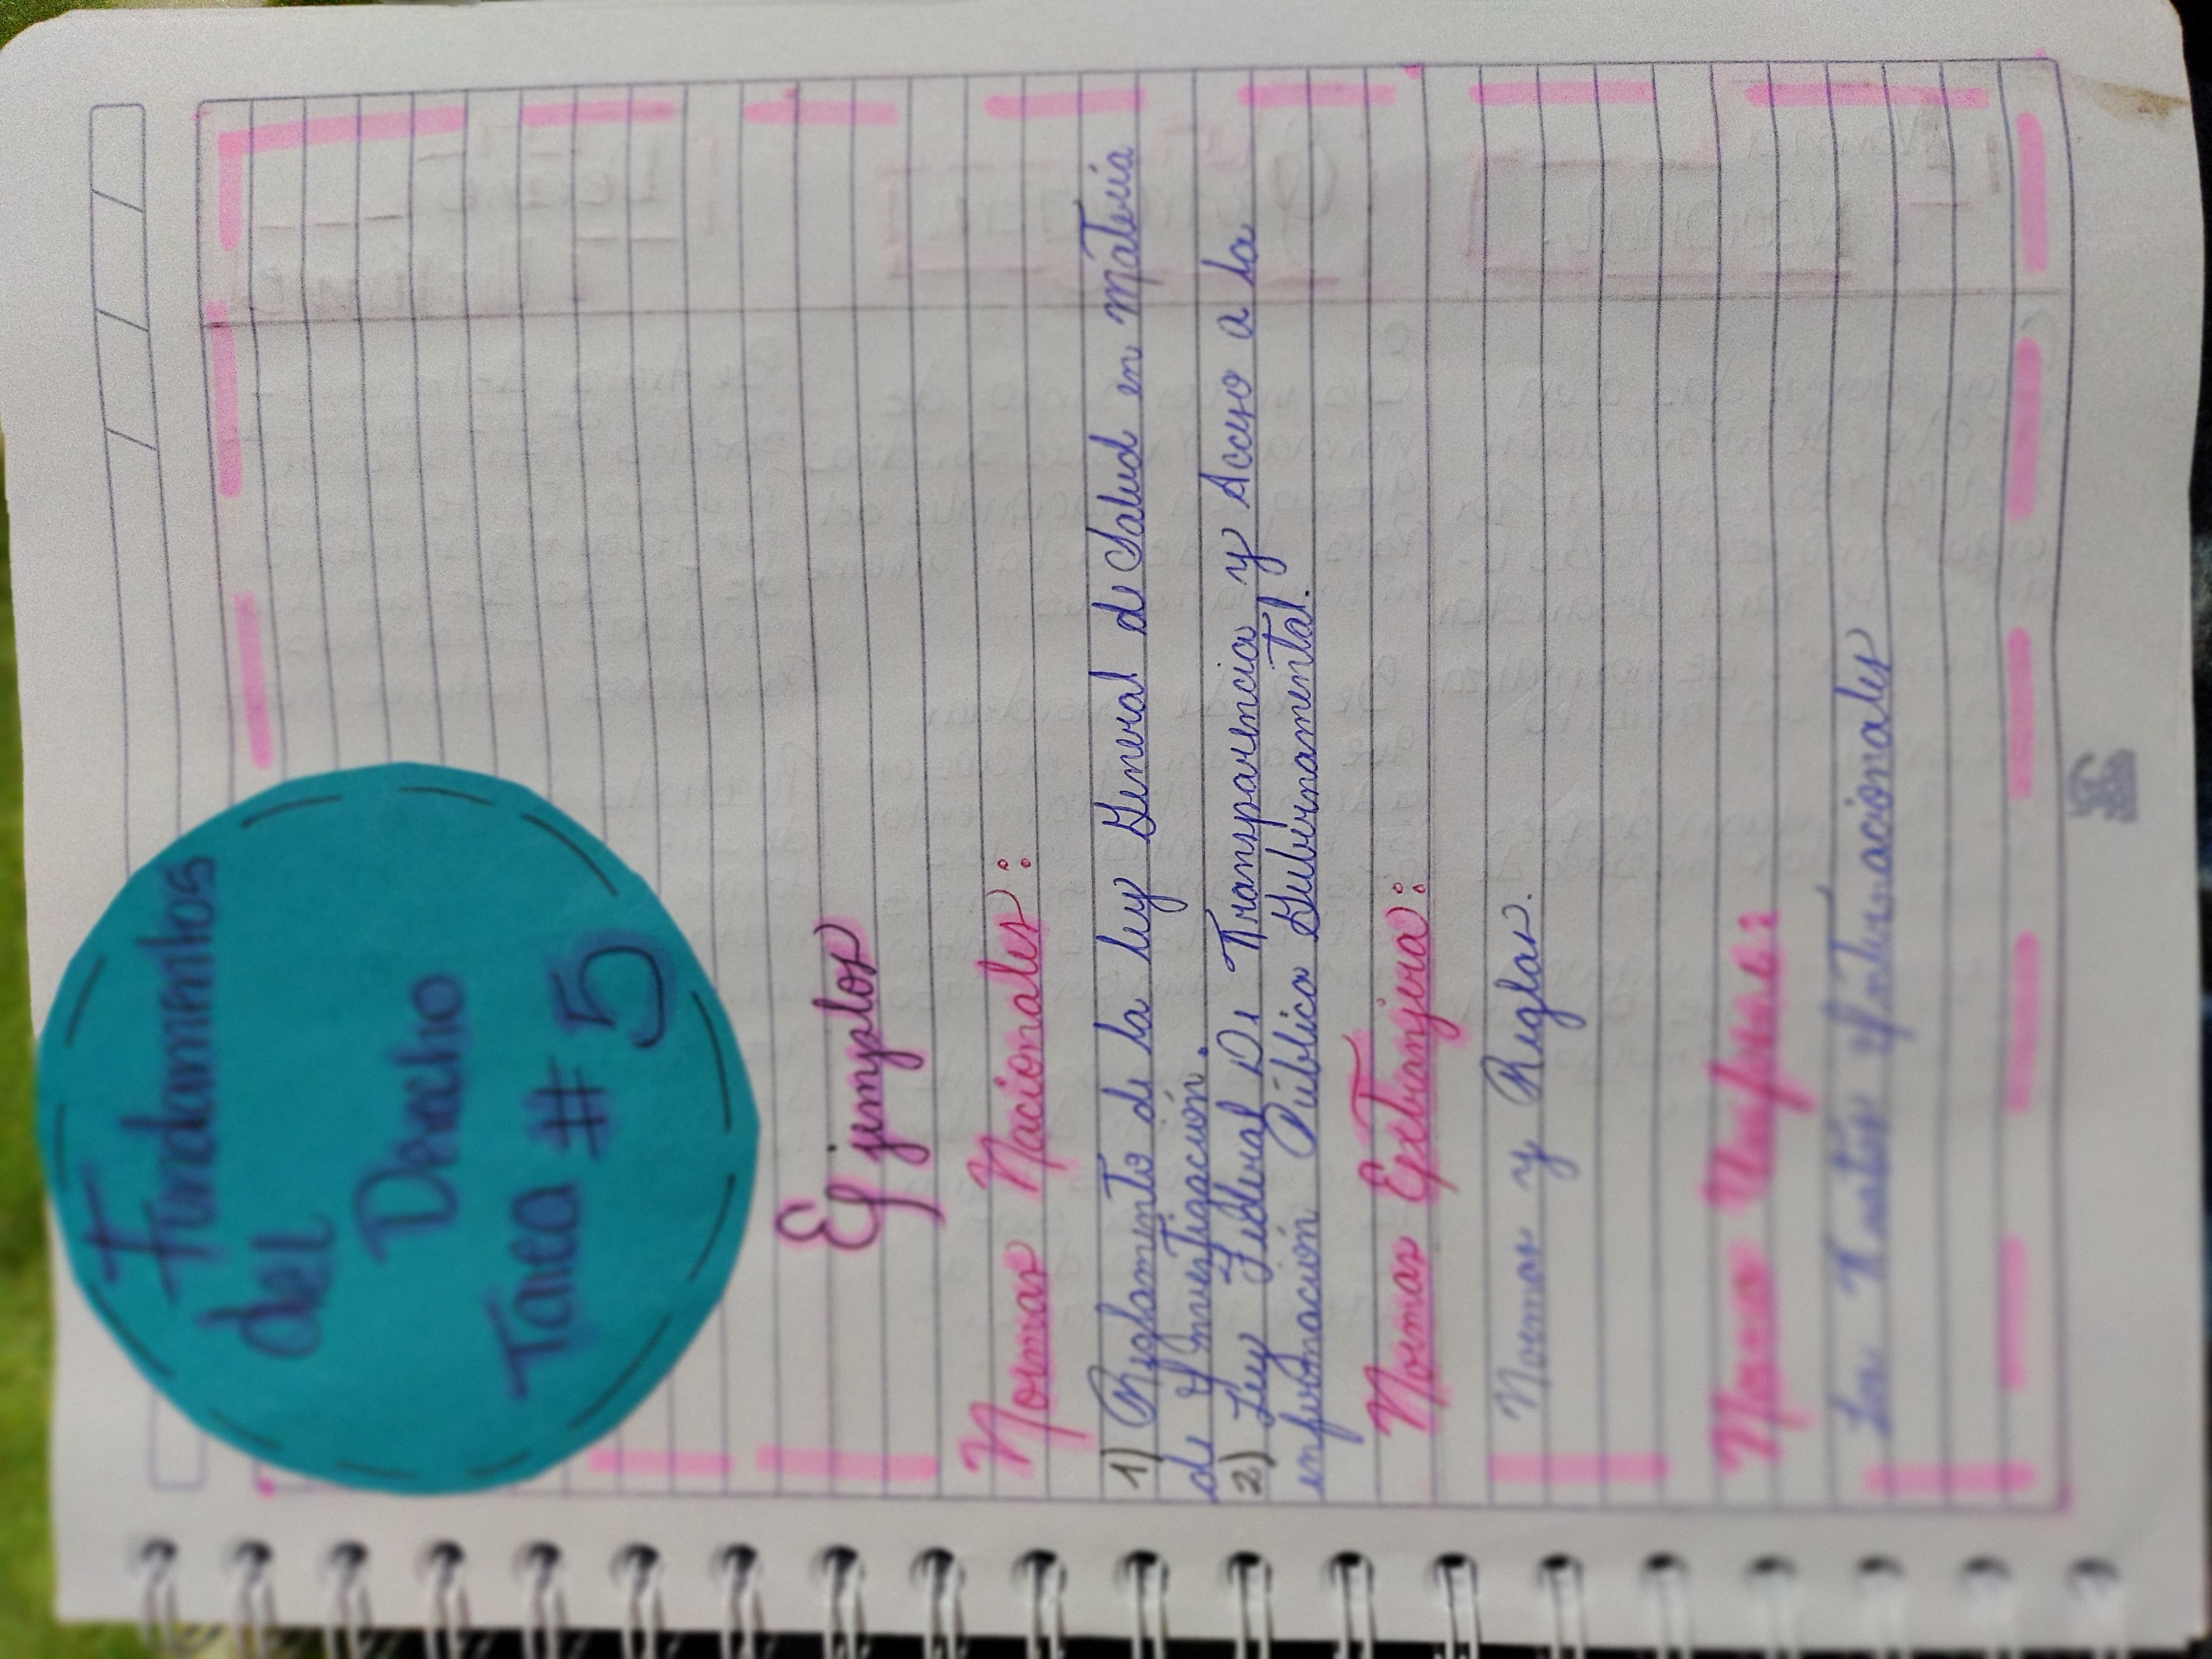 Fundamentos
del
Derecho
Tarea #5
Ejemplos
Normas Nacionales:
1) Reglamento de la ley General de Salud en Materia
de Investigación.
2) Ley Federal De Transparencia y Acceso a la
información Pública Gubernamental.
Normas Extranjera:
Normas y Reglas.
Norma Uniforme:
Los Tratados Internacionales